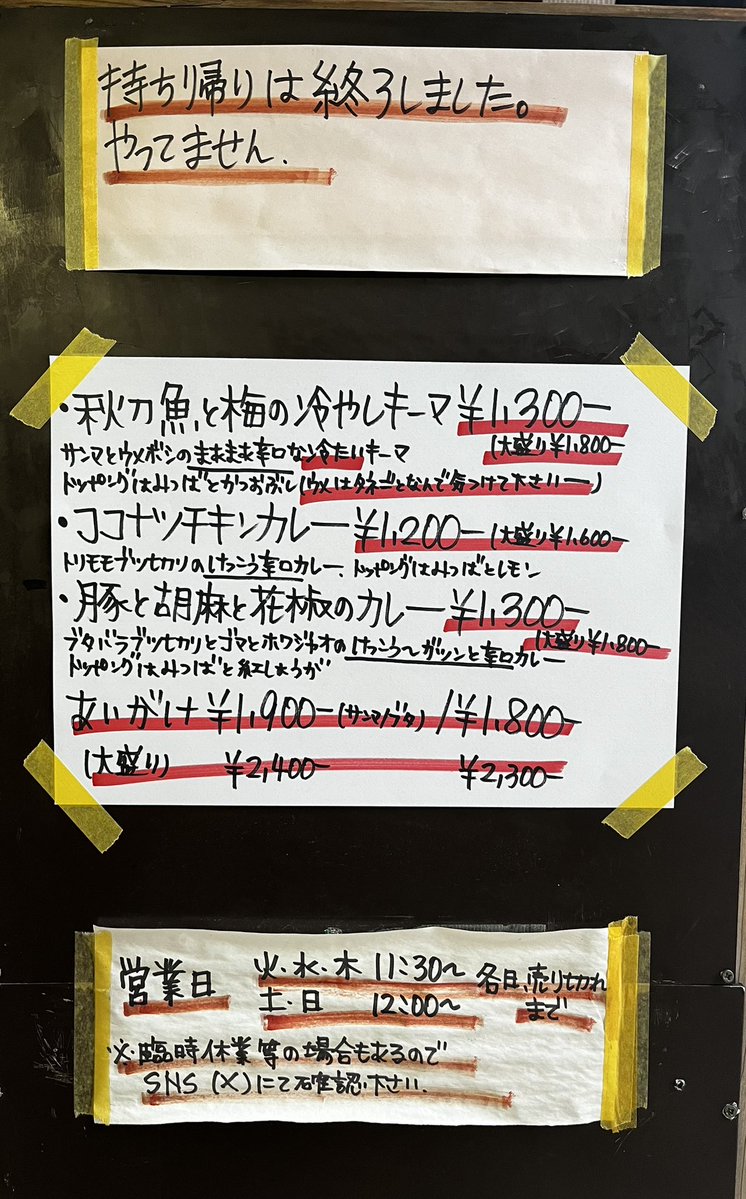 持ち帰りは終了しました。
やってません.
・秋刀魚と梅の冷やしキーマ ¥1,300-
(大盛り¥1,800-
サンマとウメボシのまあまあ辛口な冷たいキーマ
トッピングはみつばとかつおぶし(ウメはタネごとなんで気つけて下さいー)
・ココナツチキンカレー ¥1,200- (大盛り¥1,600-
トリモモブツセカリのけっこう辛口カレー、トッピングはみつばとレモン
・豚と胡麻と花椒のカレー ¥1,300-
(大盛り¥1,800-
ブタバラブツセカリとゴマとホワジャオのけっこう〜ガツンと辛口カレー
トッピングはみつばと紅しょうが
あいがけ ¥1,900-(サンマ/ブタ) / ¥1,800-
(大盛り) ¥2,400- ¥2,300-
営業日 火・水・木 11:30〜 各日、売り切れ
土・日 12:00〜 まで
※・臨時休業等の場合もあるので
SNS (X)にて確認下さい.